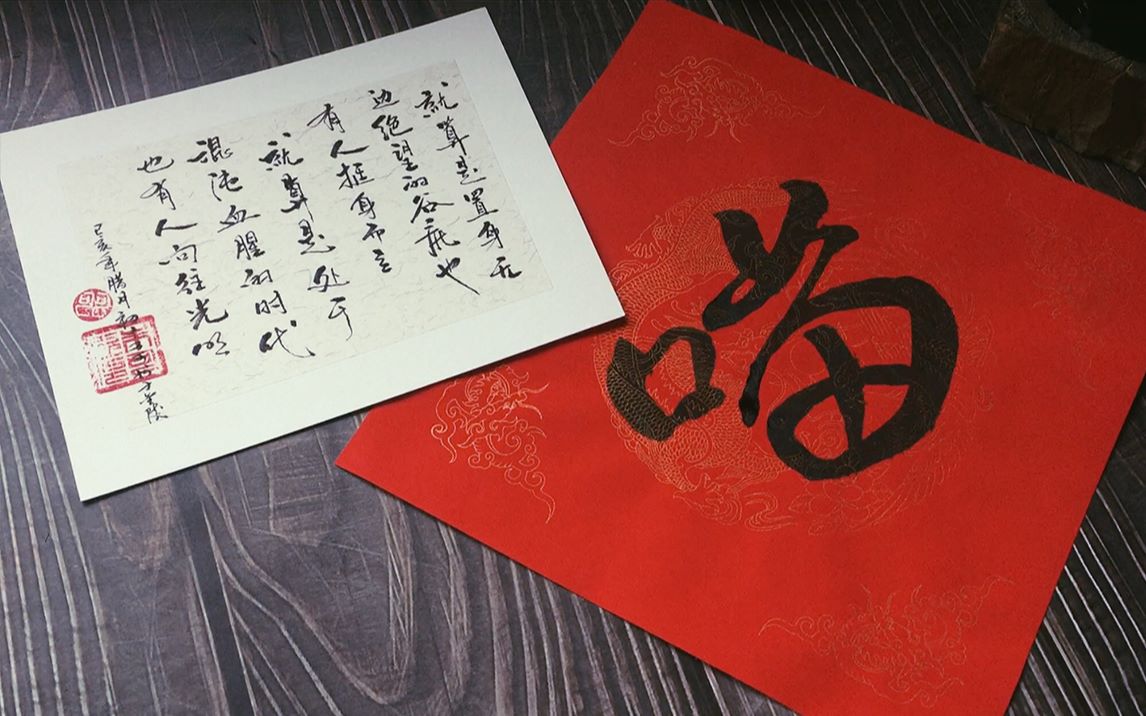 就算是置身无
边绝望的谷底也
有人挺身而立
就算是处于
混沌血腥的时代
也有人向往光明
己亥年腊月初
喵